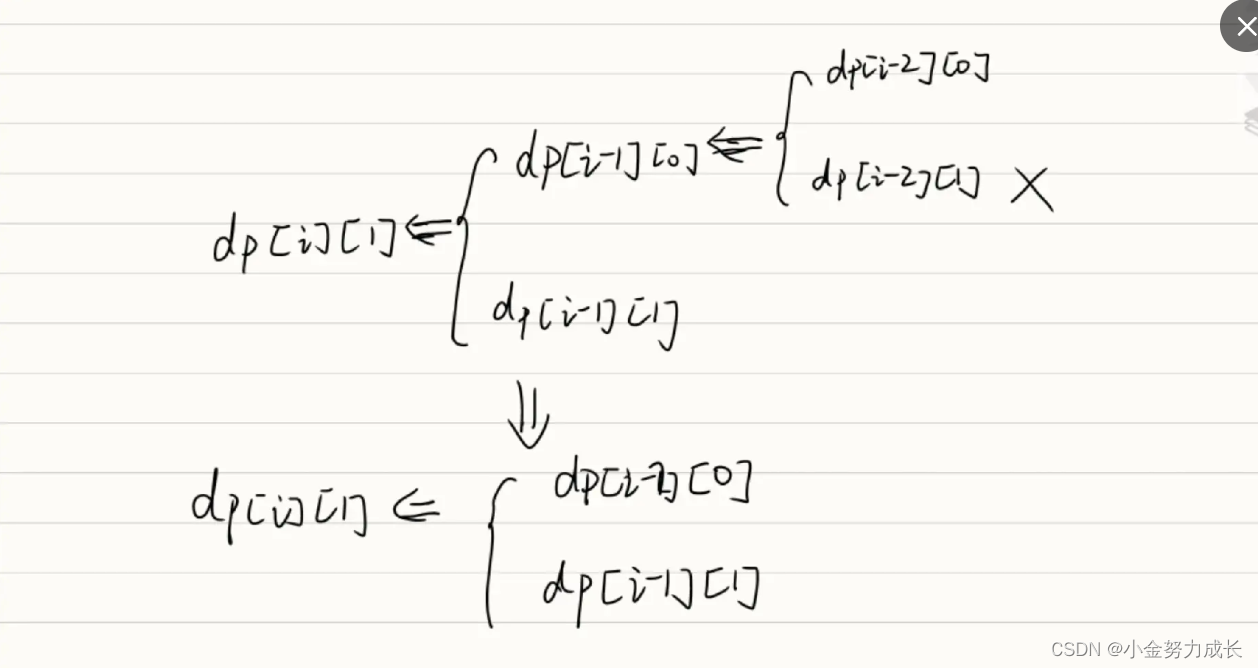 dp[i-2][0]
dp[i-1][0] ⇐
dp[i-2][1] ×
dp[i][1] ⇐
dp[i-1][1]
⇓
dp[i][1] ⇐
dp[i-2][0]
dp[i-1][1]
CSDN @小金努力成长